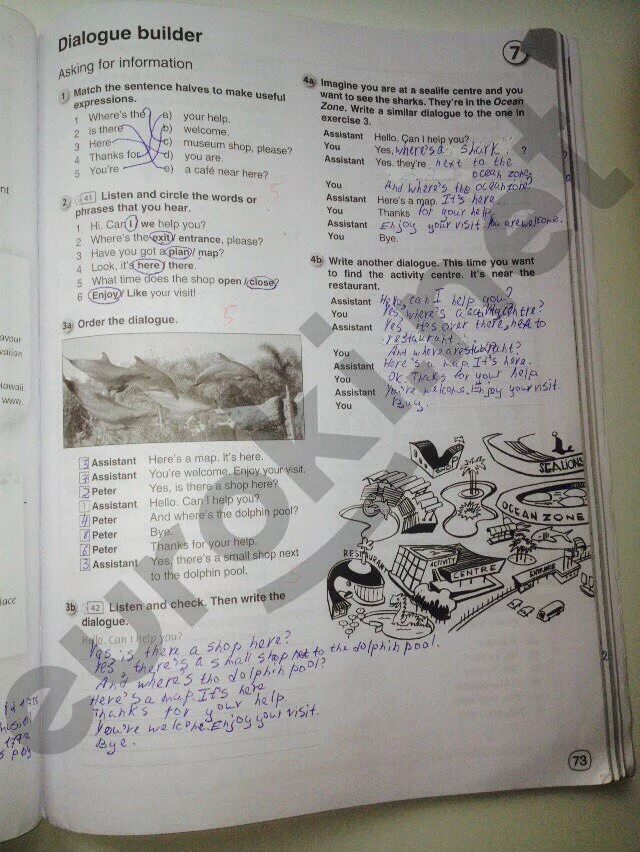 Dialogue builder
Asking for information
7
1 Match the sentence halves to make useful
expressions.
1 Where's the a) your help.
2 Is there b) welcome.
3 Here c) museum shop, please?
4 Thanks for d) you are.
5 You're e) a café near here?
5
2 41 Listen and circle the words or
phrases that you hear.
1 Hi. Can I / we help you?
2 Where's the exit / entrance, please?
3 Have you got a plan / map?
4 Look, it's here / there.
5 What time does the shop open / close?
6 Enjoy / Like your visit!
5
3a Order the dialogue.
Assistant Here's a map. It's here.
7 Assistant You're welcome. Enjoy your visit.
2 Peter Yes, is there a shop here?
1 Assistant Hello. Can I help you?
4 Peter And where's the dolphin pool?
8 Peter Bye.
6 Peter Thanks for your help.
3 Assistant Yes, there's a small shop next
to the dolphin pool.
3b 42 Listen and check. Then write the
dialogue.
Hello. Can I help you?
Yes, is there a shop here?
Yes, there's a small shop to the dolphin pool.
And where's the dolphin pool?
Here's a map. It's here
Thanks for your help
You're welcome. Enjoy your visit.
Bye.
4a Imagine you are at a sealife centre and you
want to see the sharks. They're in the Ocean
Zone. Write a similar dialogue to the one in
exercise 3.
Assistant Hello. Can I help you?
You Yes, where's a shark ?
Assistant Yes, they're next to the
ocean zone
You And where's the ocean zone?
Assistant Here's a map. It's here.
You Thanks for your help.
Assistant Enjoy your visit. You are welcome.
You Bye.
4b Write another dialogue. This time you want
to find the activity centre. It's near the
restaurant.
Assistant Hello, can I help you?
You Yes, where's a centre?
Assistant Yes, it's over there, to
restaurant
You And where a restaurant?
Assistant Here's a map. It's here.
You Ok. Thanks for your help
Assistant You're welcome. Enjoy your visit
You Buy.
SEALIONS
OCEAN ZONE
RESTAURANT
ACTIVITY
CENTRE
ENTRANCE
73
euroki.net